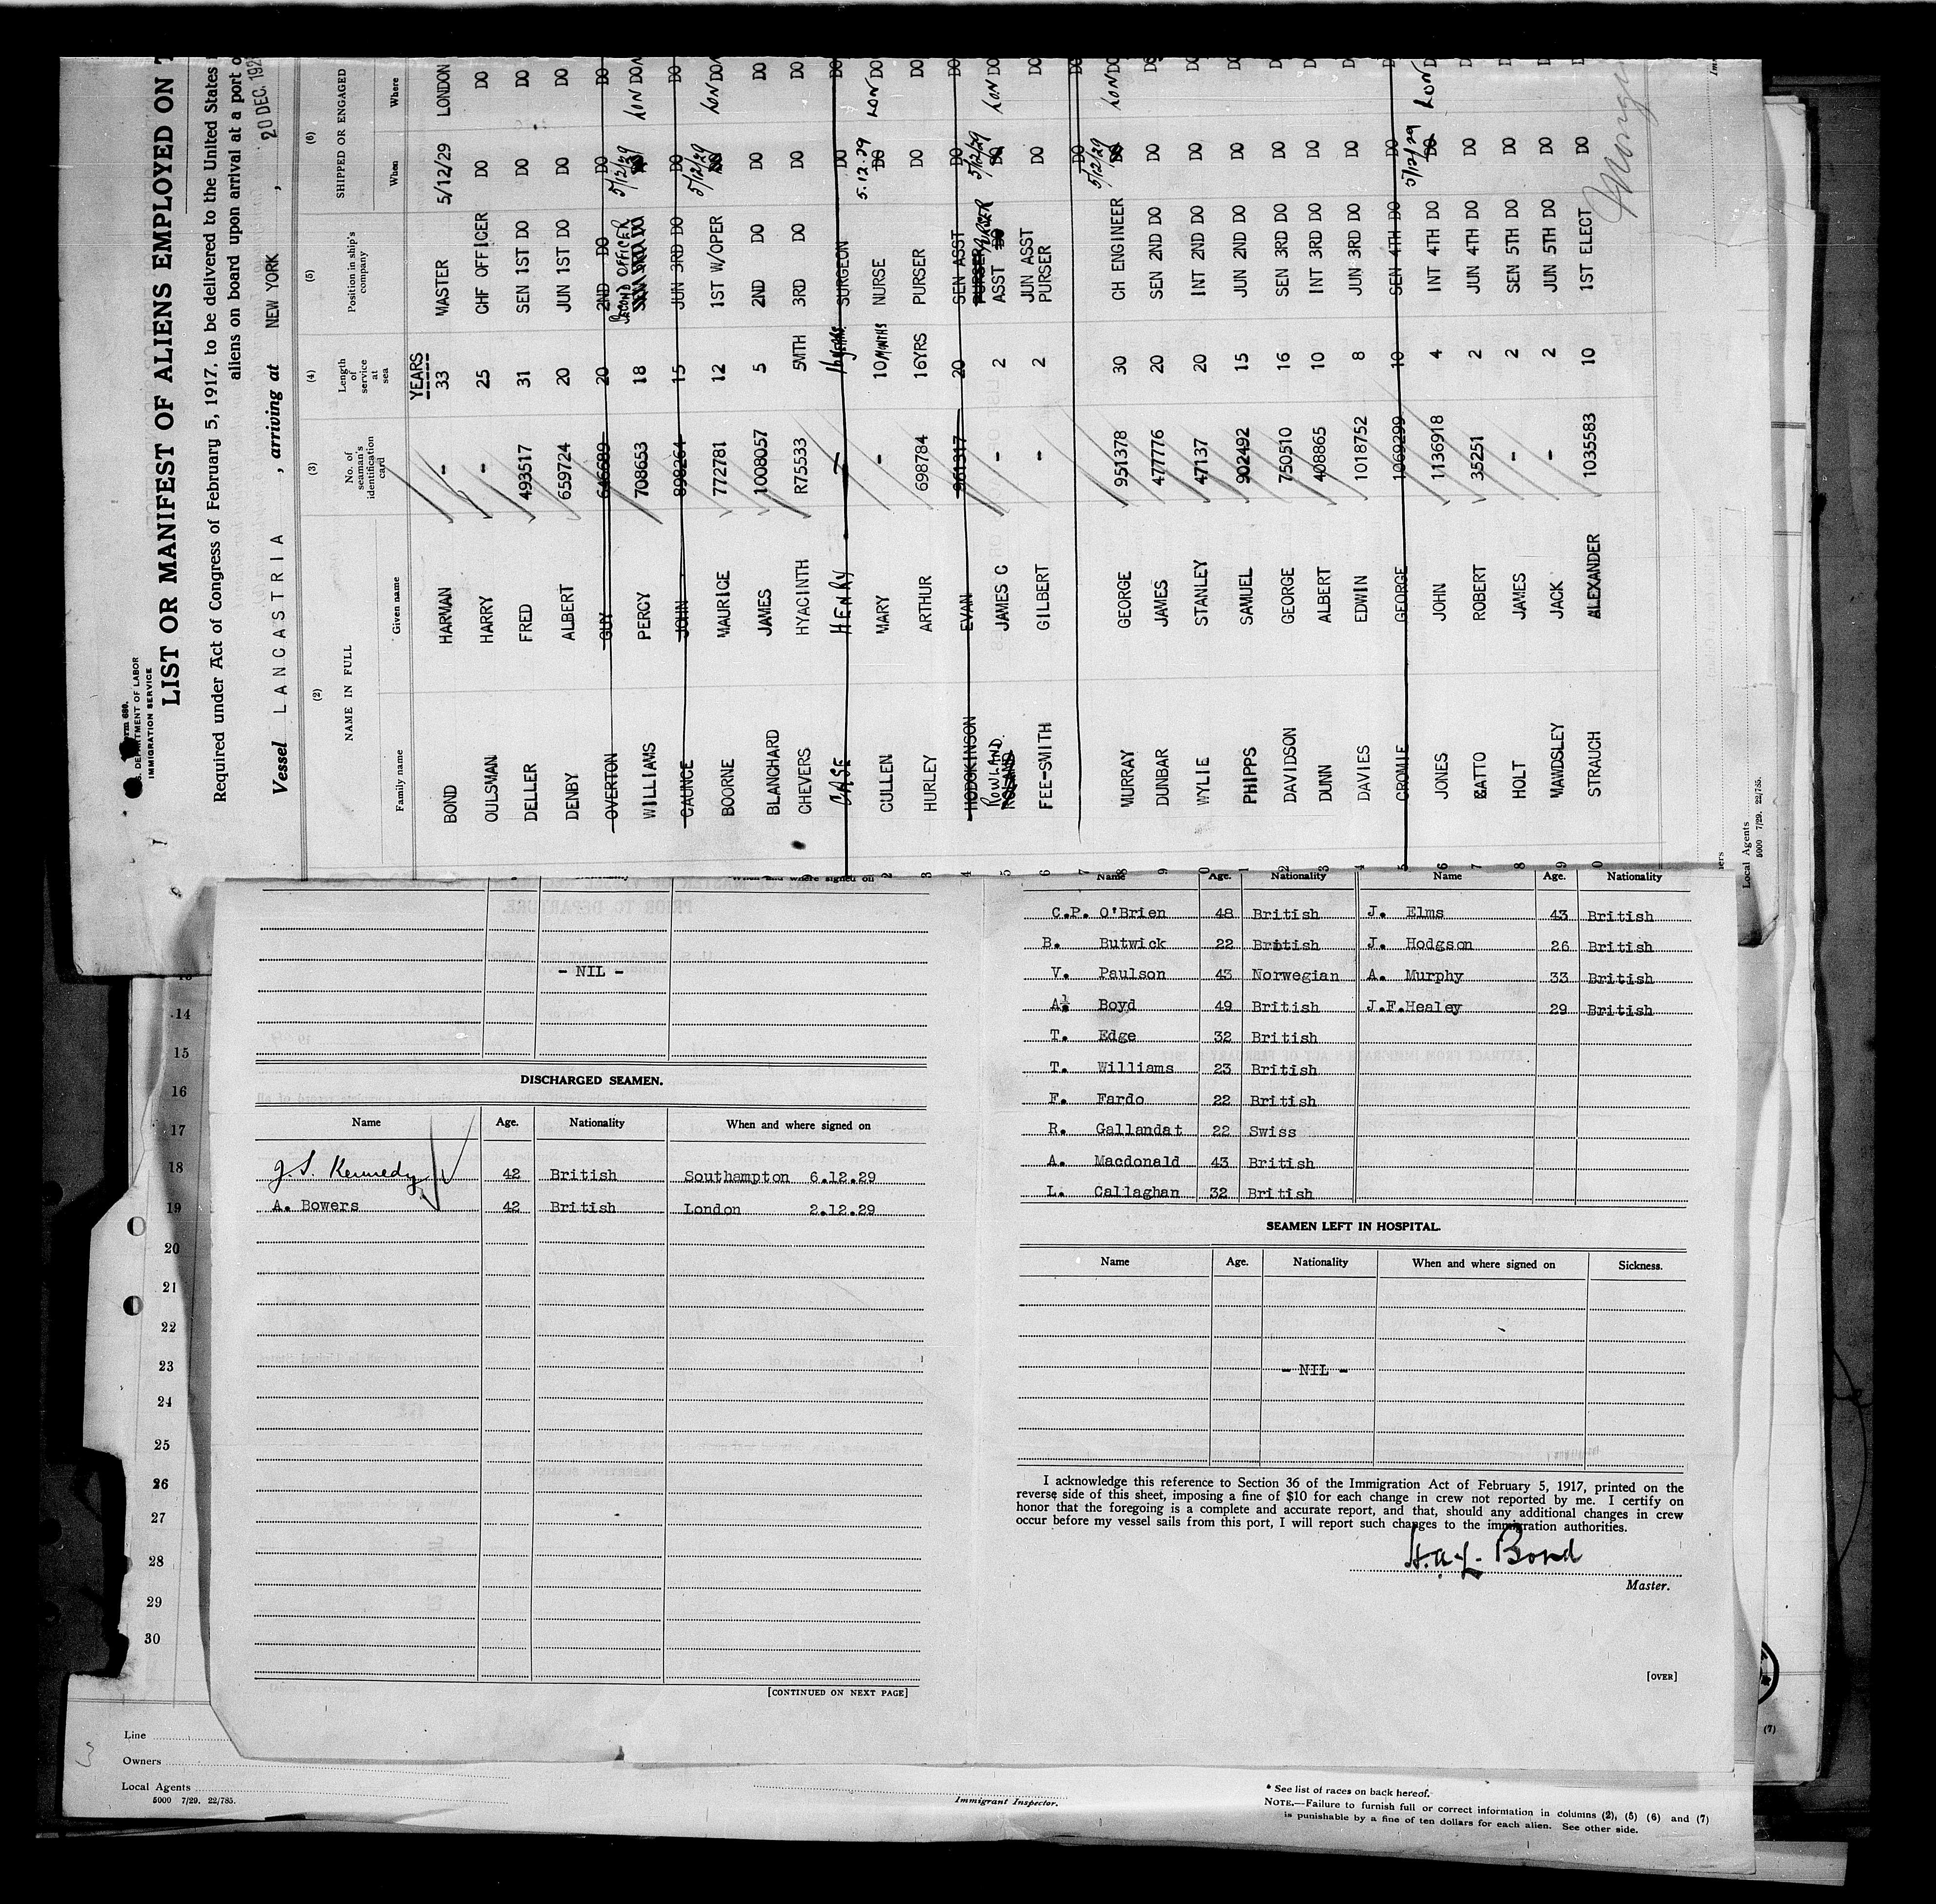 Form 689.
U.S. DEPARTMENT OF LABOR
IMMIGRATION SERVICE
LIST OR MANIFEST OF ALIENS EMPLOYED ON
Required under Act of Congress of February 5, 1917, to be delivered to the United States
aliens on board upon arrival at a port o
Vessel LANCASTRIA , arriving at NEW YORK , 20 DEC. 192
(2) (3) (4) (5) (6)
NAME IN FULL No. of seaman's identification card Length of service at sea Position in ship's company SHIPPED OR ENGAGED
Family name Given name When Where
YEARS
BOND HARMAN - 33 MASTER 5/12/29 LONDON
OULSMAN HARRY - 25 CHF OFFICER DO DO
DELLER FRED 493517 31 SEN 1ST DO DO DO
DENBY ALBERT 659724 20 JUN 1ST DO DO DO
OVERTON GUY 646689 20 2ND DO DO DO
WILLIAMS PERCY 708653 18 SECOND OFFICER 5/12/29 LONDON
CAUNCE JOHN 898264 15 JUN 3RD DO DO DO
BOORNE MAURICE 772781 12 1ST W/OPER 5/12/29 DO LONDON
BLANCHARD JAMES 1008057 5 2ND DO DO DO
CHEVERS HYACINTH R75533 5MTH 3RD DO DO DO
CASE HENRY - SURGEON DO DO
CULLEN MARY - 10 MONTHS NURSE 5.12.29 DO LON DO
HURLEY ARTHUR 698784 16YRS PURSER DO DO
HODGKINSON EVAN 961317 20 SEN ASST PURSER DO DO
ROWLAND. ROLAND JAMES C - 2 ASST DO PURSER 5/12/29 DO LON DO
FEE-SMITH GILBERT - 2 JUN ASST PURSER DO DO
DO DO
MURRAY GEORGE 951378 30 CH ENGINEER 5/12/29 DO LON DO
DUNBAR JAMES 477776 20 SEN 2ND DO DO DO
WYLIE STANLEY 47137 20 INT 2ND DO DO DO
PHIPPS SAMUEL 902492 15 JUN 2ND DO DO DO
DAVIDSON GEORGE 750510 16 SEN 3RD DO DO DO
DUNN ALBERT 408865 10 INT 3RD DO DO DO
DAVIES EDWIN 1018752 8 JUN 3RD DO DO D
CROMIE GEORGE 1069299 10 SEN 4TH DO DO D
JONES JOHN 1136918 4 INT 4TH DO 5/12/29 DO LON D
CATTO ROBERT 35251 2 JUN 4TH DO DO D
HOLT JAMES - 2 SEN 5TH DO DO D
MAWDSLEY JACK - 2 JUN 5TH DO DO D
STRAUCH ALEXANDER 1035583 10 1ST ELECT DO D
Local Agents
5000 7/29. 22/785.
When and where signed on
- NIL -
DISCHARGED SEAMEN.
Name Age. Nationality When and where signed on
J. S. Kennedy 42 British Southampton 6.12.29
A. Bowers 42 British London 2.12.29
[CONTINUED ON NEXT PAGE]
Name Age. Nationality Name Age. Nationality
C.P. O'Brien 48 British J. Elms 43 British
B. Butwick 22 British J. Hodgson 26 British
V. Paulson 43 Norwegian A. Murphy 33 British
A. Boyd 49 British J.F.Healey 29 British
T. Edge 32 British
T. Williams 23 British
F. Fardo 22 British
R. Gallandat 22 Swiss
A. Macdonald 43 British
L. Callaghan 32 British
SEAMEN LEFT IN HOSPITAL.
Name Age. Nationality When and where signed on Sickness.
- NIL -
I acknowledge this reference to Section 36 of the Immigration Act of February 5, 1917, printed on the
reverse side of this sheet, imposing a fine of $10 for each change in crew not reported by me. I certify on
honor that the foregoing is a complete and accurate report, and that, should any additional changes in crew
occur before my vessel sails from this port, I will report such changes to the immigration authorities.
H.A.L. Bond
Master.
[OVER]
14
15
16
17
18
19
20
21
22
23
24
25
26
27
28
29
30
Line
Owners
Local Agents
5000 7/29. 22/785.
3
Immigrant Inspector.
* See list of races on back hereof.
NOTE.—Failure to furnish full or correct information in columns (2), (5) (6) and (7)
is punishable by a fine of ten dollars for each alien. See other side.
(7)